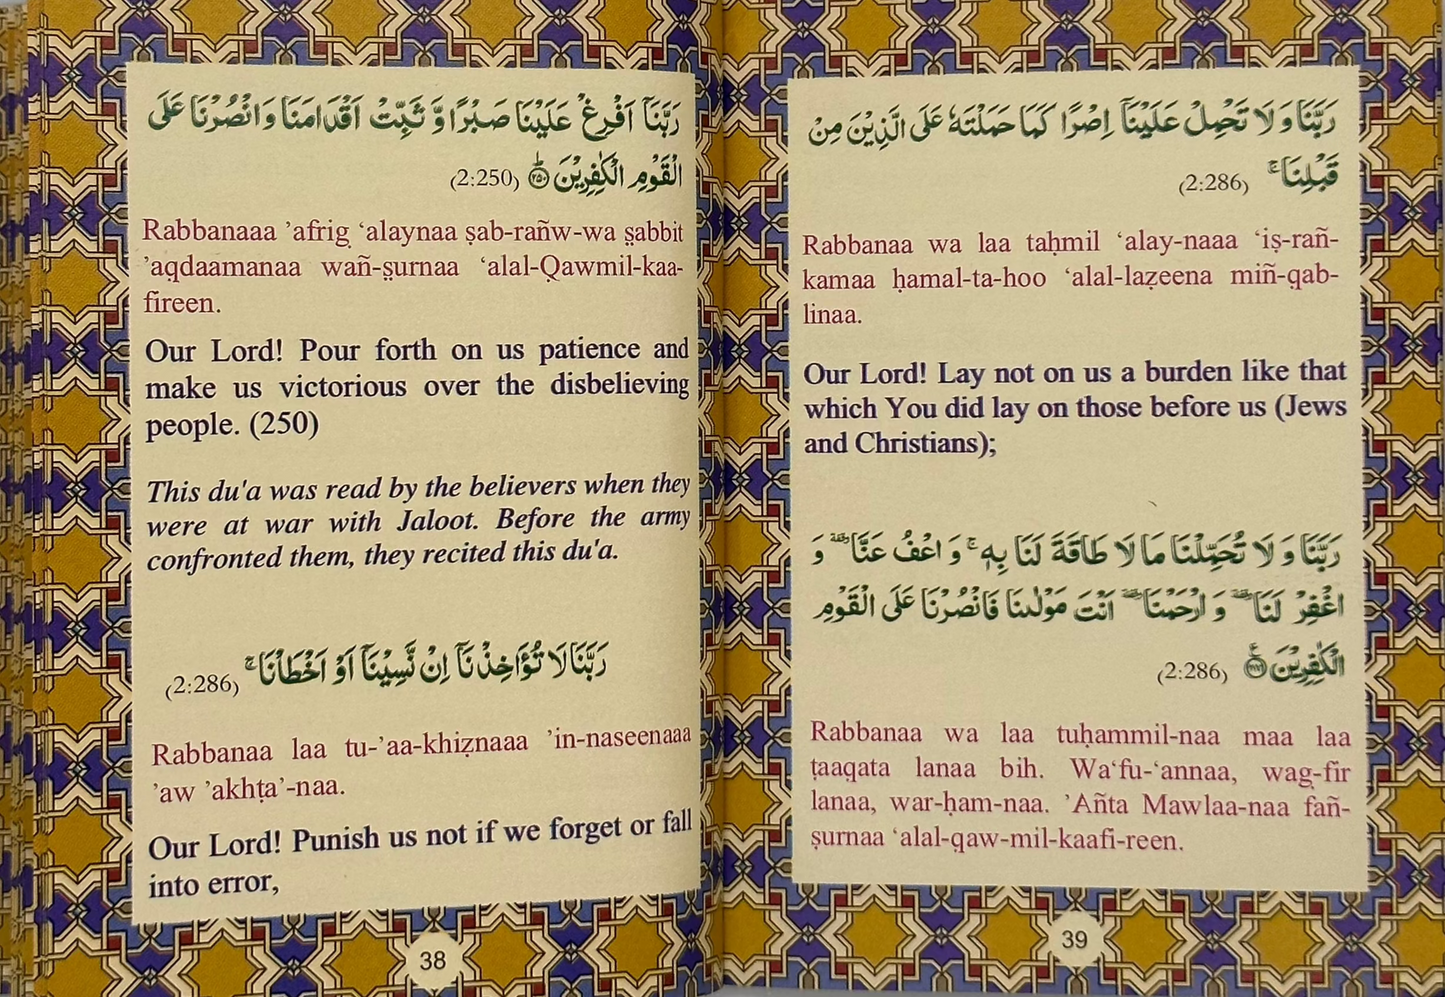 رَبَّنَاۤ اَفْرِغْ عَلَيْنَا صَبْرًا وَّ ثَبِّتْ اَقْدَامَنَا وَانْصُرْنَا عَلَى
الْقَوْمِ الْكٰفِرِيْنَ ﴿۲۵۰﴾ؕ (2:250)
Rabbanaaa ’afrig ‘alaynaa ṣab-rañw-wa s̤abbit
’aqdaamanaa wañ-ṣurnaa ‘alal-Qawmil-kaa-
fireen.
Our Lord! Pour forth on us patience and
make us victorious over the disbelieving
people. (250)
This du'a was read by the believers when they
were at war with Jaloot. Before the army
confronted them, they recited this du'a.
رَبَّنَا لَا تُؤَاخِذْنَاۤ اِنْ نَّسِيْنَاۤ اَوْ اَخْطَاْنَا ۚ (2:286)
Rabbanaa laa tu-’aa-khiẓnaaa ’in-naseenaaa
’aw ’akhṭa’-naa.
Our Lord! Punish us not if we forget or fall
into error,
38
رَبَّنَا وَ لَا تَحْمِلْ عَلَيْنَاۤ اِصْرًا كَمَا حَمَلْتَهٗ عَلَى الَّذِيْنَ مِنْ
قَبْلِنَا ۚ (2:286)
Rabbanaa wa laa taḥmil ‘alay-naaa ‘iṣ-rañ-
kamaa ḥamal-ta-hoo ‘alal-laẓeena miñ-qab-
linaa.
Our Lord! Lay not on us a burden like that
which You did lay on those before us (Jews
and Christians);
رَبَّنَا وَ لَا تُحَمِّلْنَا مَا لَا طَاقَةَ لَنَا بِهٖ ۚ وَ اعْفُ عَنَّا ۥ وَ
اغْفِرْ لَنَا ۥ وَ ارْحَمْنَا ۥ اَنْتَ مَوْلٰىنَا فَانْصُرْنَا عَلَى الْقَوْمِ
الْكٰفِرِيْنَ ﴿۲۸۶﴾ (2:286)
Rabbanaa wa laa tuḥammil-naa maa laa
ṭaaqata lanaa bih. Wa‘fu-‘annaa, wag-fir
lanaa, war-ḥam-naa. ’Añta Mawlaa-naa fañ-
ṣurnaa ‘alal-qaw-mil-kaafi-reen.
39